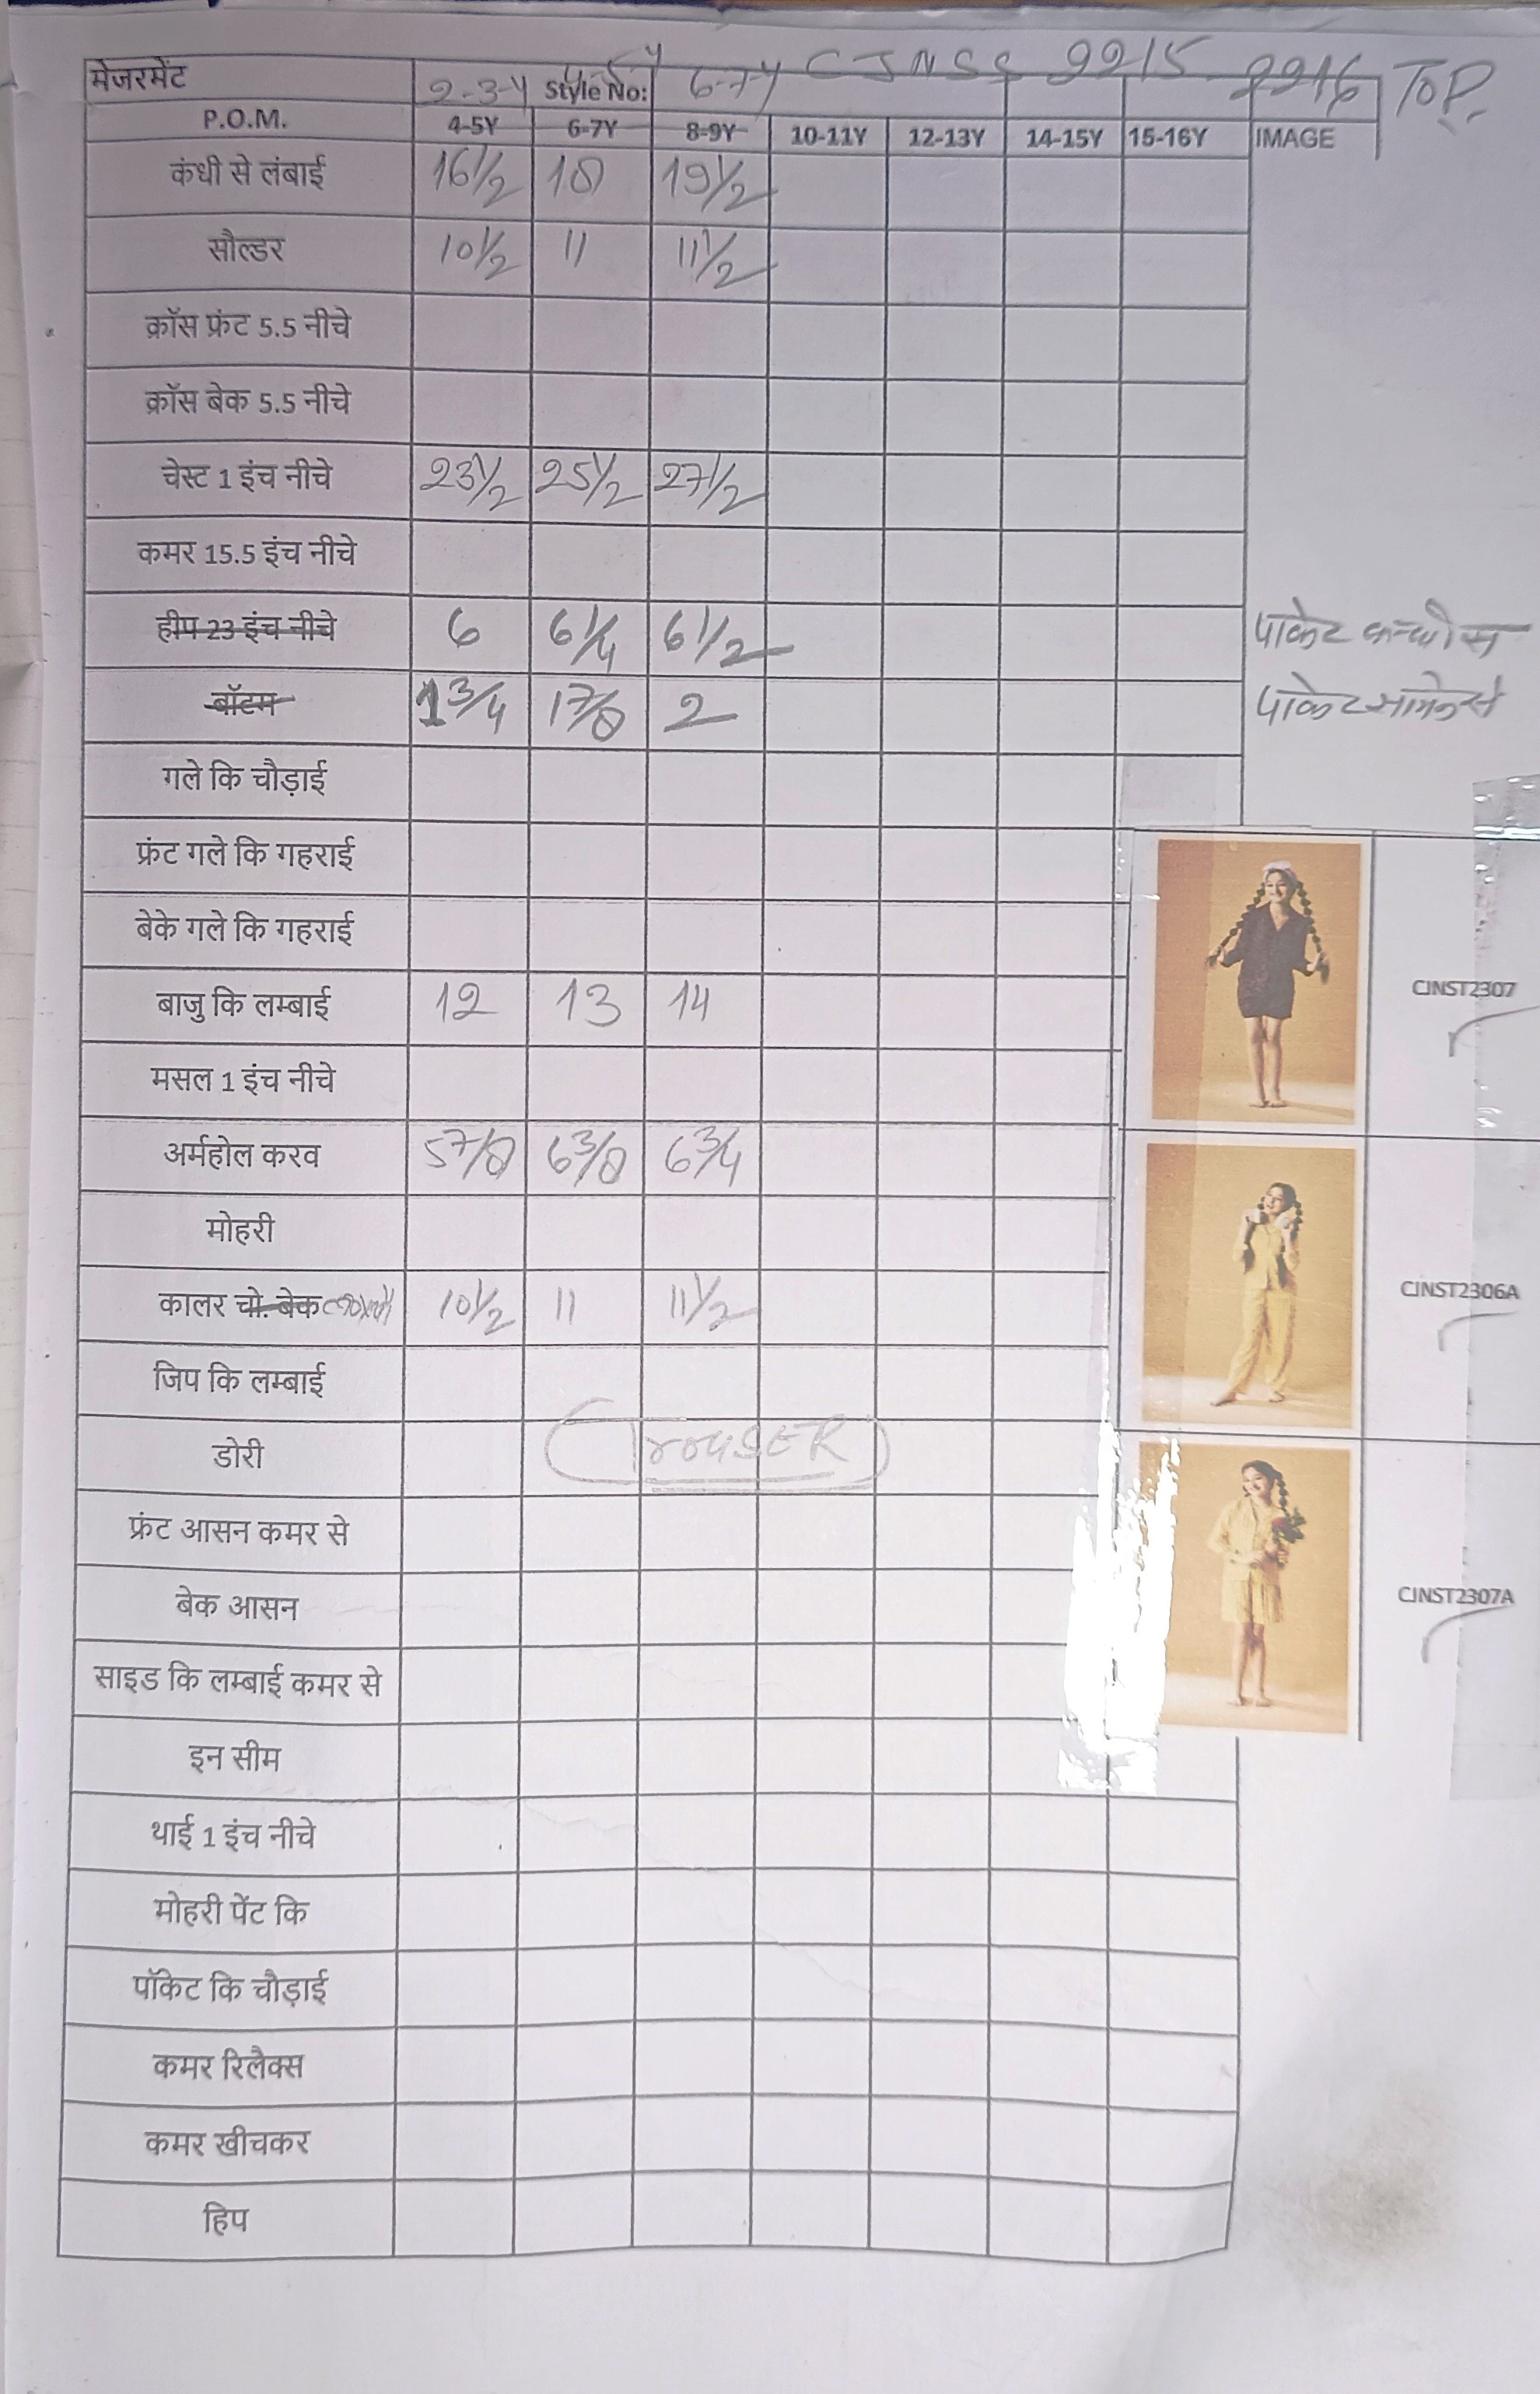 मेजरमेंट 2-3-Y Style No: 4-5Y 6-7-Y CJNSS 2215 2216 TOP.
P.O.M. 4-5Y 6-7Y 8-9Y 10-11Y 12-13Y 14-15Y 15-16Y IMAGE
कंधी से लंबाई 16 1/2 18 19 1/2
सौल्डर 10 1/2 11 11 1/2
क्रॉस फ्रंट 5.5 नीचे
क्रॉस बेक 5.5 नीचे
चेस्ट 1 इंच नीचे 23 1/2 25 1/2 27 1/2
कमर 15.5 इंच नीचे
हीप 23 इंच नीचे 6 6 1/4 6 1/2 पाकेट
बॉटम 1 3/4 1 7/8 2 पाकेट
गले कि चौड़ाई
फ्रंट गले कि गहराई
बेके गले कि गहराई
बाजु कि लम्बाई 12 13 14
CJNST2307
मसल 1 इंच नीचे
अर्महोल करव 5 7/8 6 3/8 6 3/4
मोहरी
कालर चो. बेक 10 1/2 11 11 1/2
CJNST2306A
जिप कि लम्बाई
डोरी TrouSER
फ्रंट आसन कमर से
बेक आसन
CJNST2307A
साइड कि लम्बाई कमर से
इन सीम
थाई 1 इंच नीचे
मोहरी पेंट कि
पॉकेट कि चौड़ाई
कमर रिलैक्स
कमर खीचकर
हिप